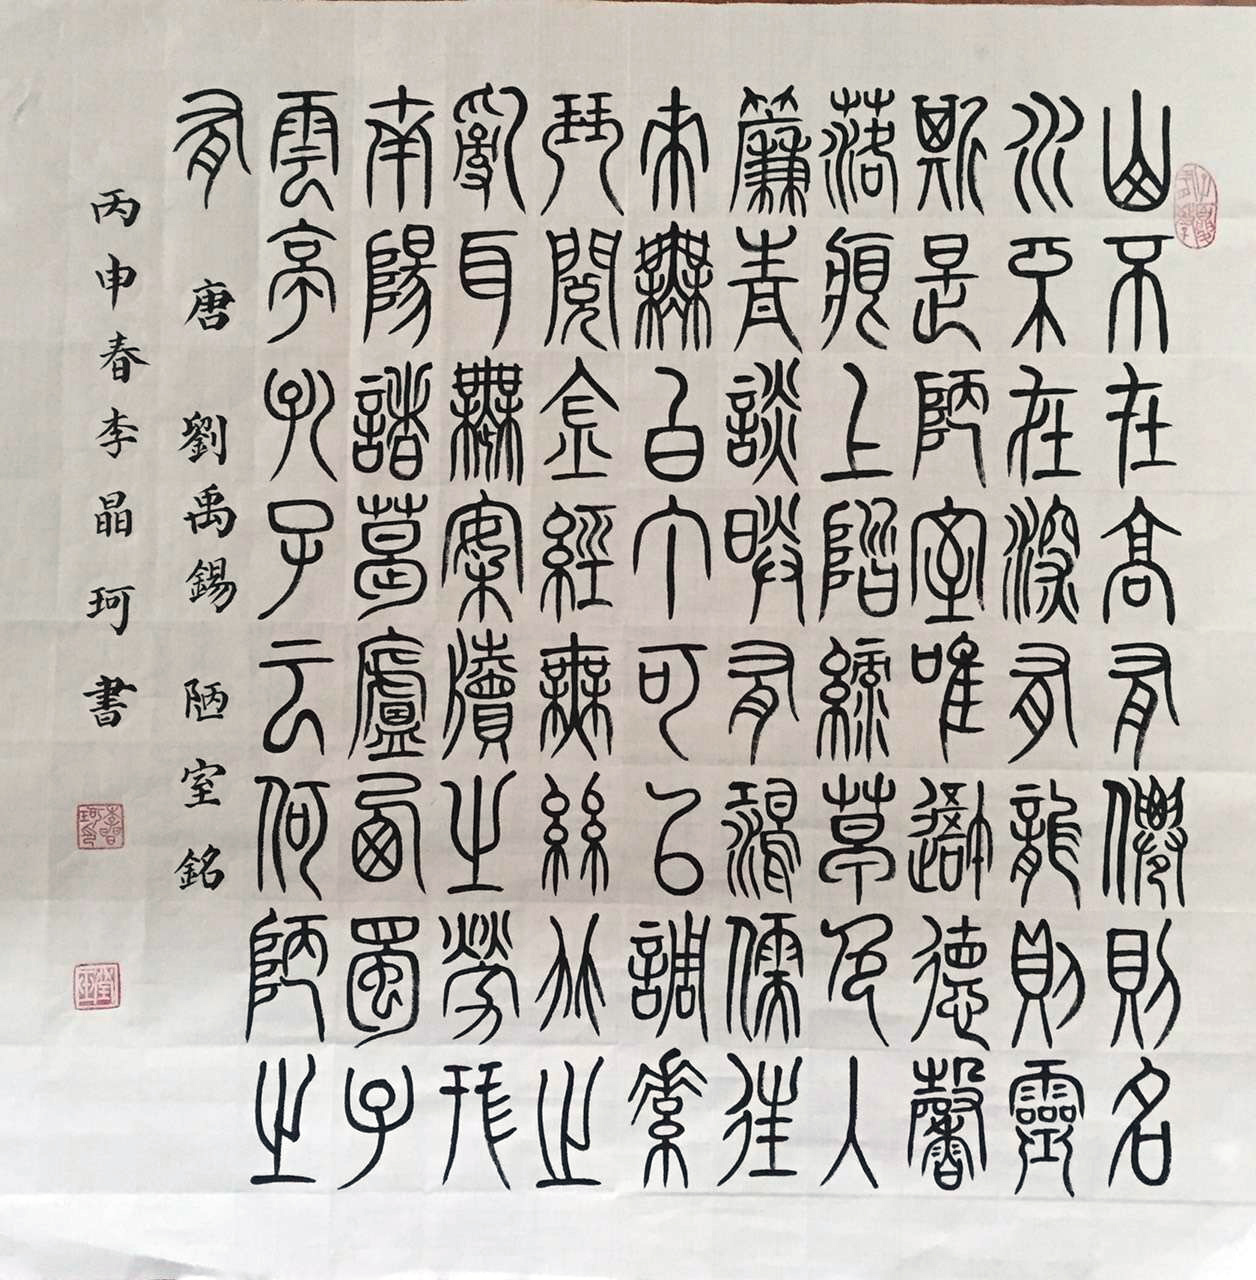 山不在高有僊則名
水不在深有龍則靈
斯是陋室唯吾德馨
菭痕上階綠草色人
簾青談笑有鴻儒往
來無白丁可以調素
琴閱金經無絲竹之
亂耳無案牘之勞形
南陽諸葛廬西蜀子
雲亭孔子云何陋之
有 唐 劉禹錫 陋室銘
丙申春李晶珂書